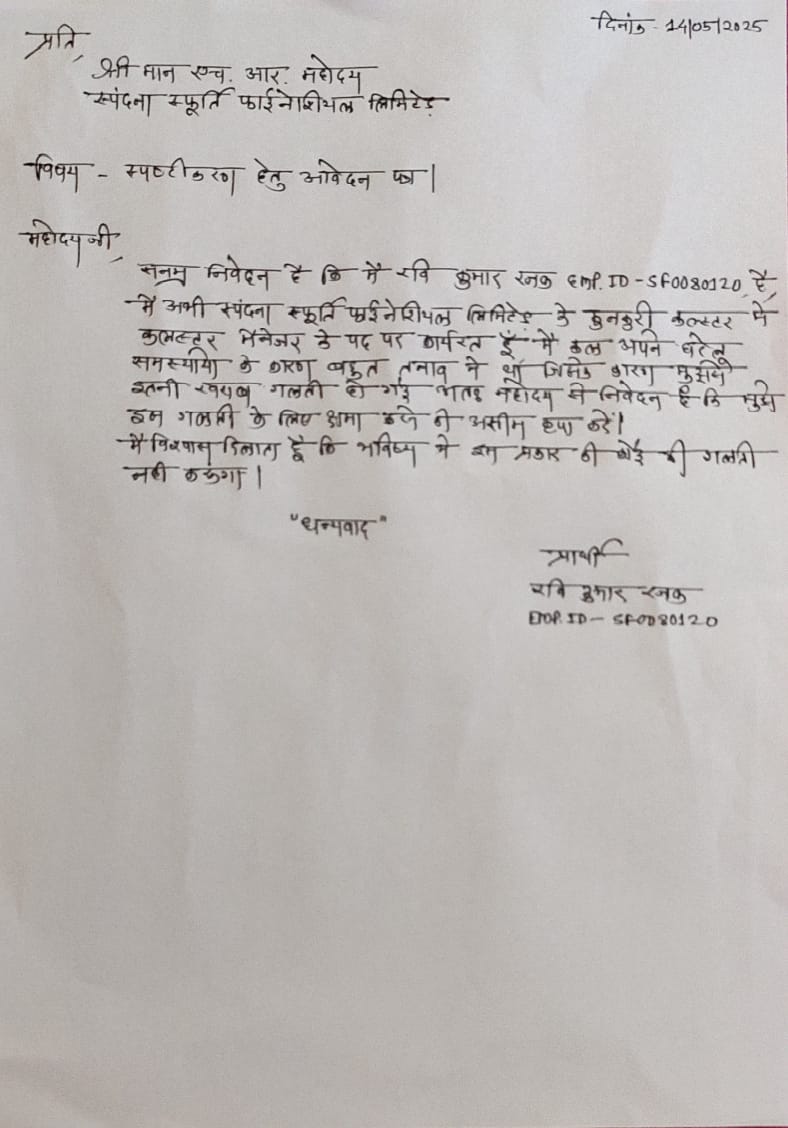 दिनांक - 14/05/2025
प्रति,
श्री मान एच. आर. महोदय
स्पंदना स्फूर्ति फाईनेशियल लिमिटेड
विषय - स्पष्टीकरण हेतु आवेदन पत्र।
महोदय जी,
सनम्र निवेदन है कि मै रवि कुमार रजक EMP. ID - SF0080120 है,
मे अभी स्पंदना स्फूर्ति फाईनेशियल लिमिटेड के कुनकुरी कल्स्टर मे
कलस्टर मेनेजर के पद पर कार्यरत हूँ मै कल अपने घरेलू
समस्यायो के कारण बहुत तनाव मे था जिसके कारण मुझसे
इतनी खराब गलती हो गई अतः महोदय से निवेदन है कि मुझे
इस गलती के लिए क्षमा करने की असीम कृपा करें।
मे विश्वास दिलाता हूँ कि भविष्य मे इस प्रकार की कोई भी गलती
नही करूंगा।
"धन्यवाद"
प्रार्थी
रवि कुमार रजक
EMP. ID - SF0080120